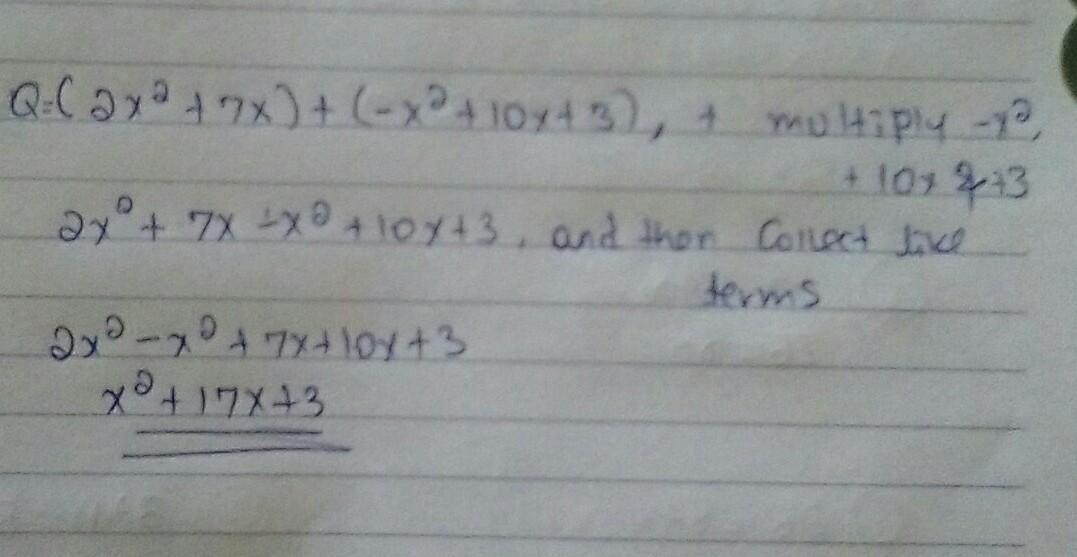 Q=(2x²+7x)+(-x²+10x+3), + multiply -x²,
+10x &+3
2x²+7x-x²+10x+3, and then Collect like
terms
2x²-x²+7x+10x+3
x²+17x+3